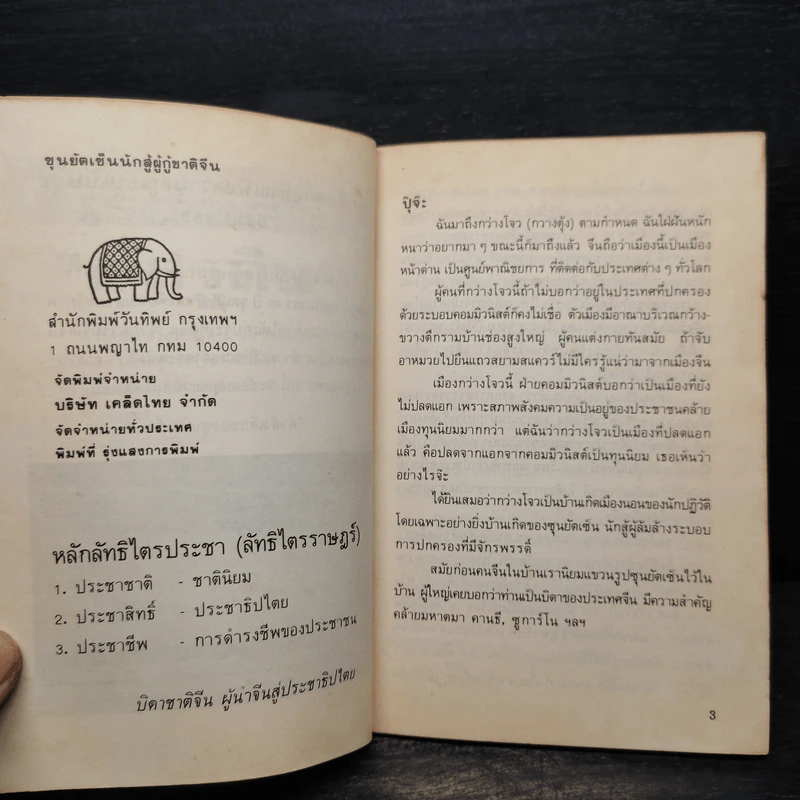 ซุนยัตเซ็นนักสู้ผู้กู้ชาติจีน
สำนักพิมพ์วันทิพย์ กรุงเทพฯ
1 ถนนพญาไท กทม 10400
จัดพิมพ์จำหน่าย
บริษัท เคล็ดไทย จำกัด
จัดจำหน่ายทั่วประเทศ
พิมพ์ที่ รุ่งแสงการพิมพ์
หลักลัทธิไตรประชา (ลัทธิไตรราษฎร์)
1. ประชาชาติ - ชาตินิยม
2. ประชาสิทธิ์ - ประชาธิปไตย
3. ประชาชีพ - การดำรงชีพของประชาชน
บิดาชาติจีน ผู้นำจีนสู่ประชาธิปไตย
ปุ๊จ๊ะ
ฉันมาถึงกว่างโจว (กวางตุ้ง) ตามกำหนด ฉันใฝ่ฝันหนัก
หนาว่าอยากมา ๆ ขณะนี้ก็มาถึงแล้ว จีนถือว่าเมืองนี้เป็นเมือง
หน้าด่าน เป็นศูนย์พาณิชยการ ที่ติดต่อกับประเทศต่าง ๆ ทั่วโลก
ผู้คนที่กว่างโจวนี้ถ้าไม่บอกว่าอยู่ในประเทศที่ปกครอง
ด้วยระบอบคอมมิวนิสต์ก็คงไม่เชื่อ ตัวเมืองมีอาณาบริเวณกว้าง-
ขวางตึกรามบ้านช่องสูงใหญ่ ผู้คนแต่งกายทันสมัย ถ้าจับ
อาหมวยไปยืนแถวสยามสแควร์ไม่มีใครรู้แน่ว่ามาจากเมืองจีน
เมืองกว่างโจวนี้ ฝ่ายคอมมิวนิสต์บอกว่าเป็นเมืองที่ยัง
ไม่ปลดแอก เพราะสภาพสังคมความเป็นอยู่ของประชาชนคล้าย
เมืองทุนนิยมมากกว่า แต่ฉันว่ากว่างโจวเป็นเมืองที่ปลดแอก
แล้ว คือปลดจากแอกจากคอมมิวนิสต์เป็นทุนนิยม เธอเห็นว่า
อย่างไรจ๊ะ
ได้ยินเสมอว่ากว่างโจวเป็นบ้านเกิดเมืองนอนของนักปฏิวัติ
โดยเฉพาะอย่างยิ่งบ้านเกิดของซุนยัตเซ็น นักสู้ผู้ล้มล้างระบอบ
การปกครองที่มีจักรพรรดิ์
สมัยก่อนคนจีนในบ้านเรานิยมแขวนรูปซุนยัตเซ็นไว้ใน
บ้าน ผู้ใหญ่เคยบอกว่าท่านเป็นบิดาของประเทศจีน มีความสำคัญ
คล้ายมหาตมา คานธี, ซูการ์โน ฯลฯ
3